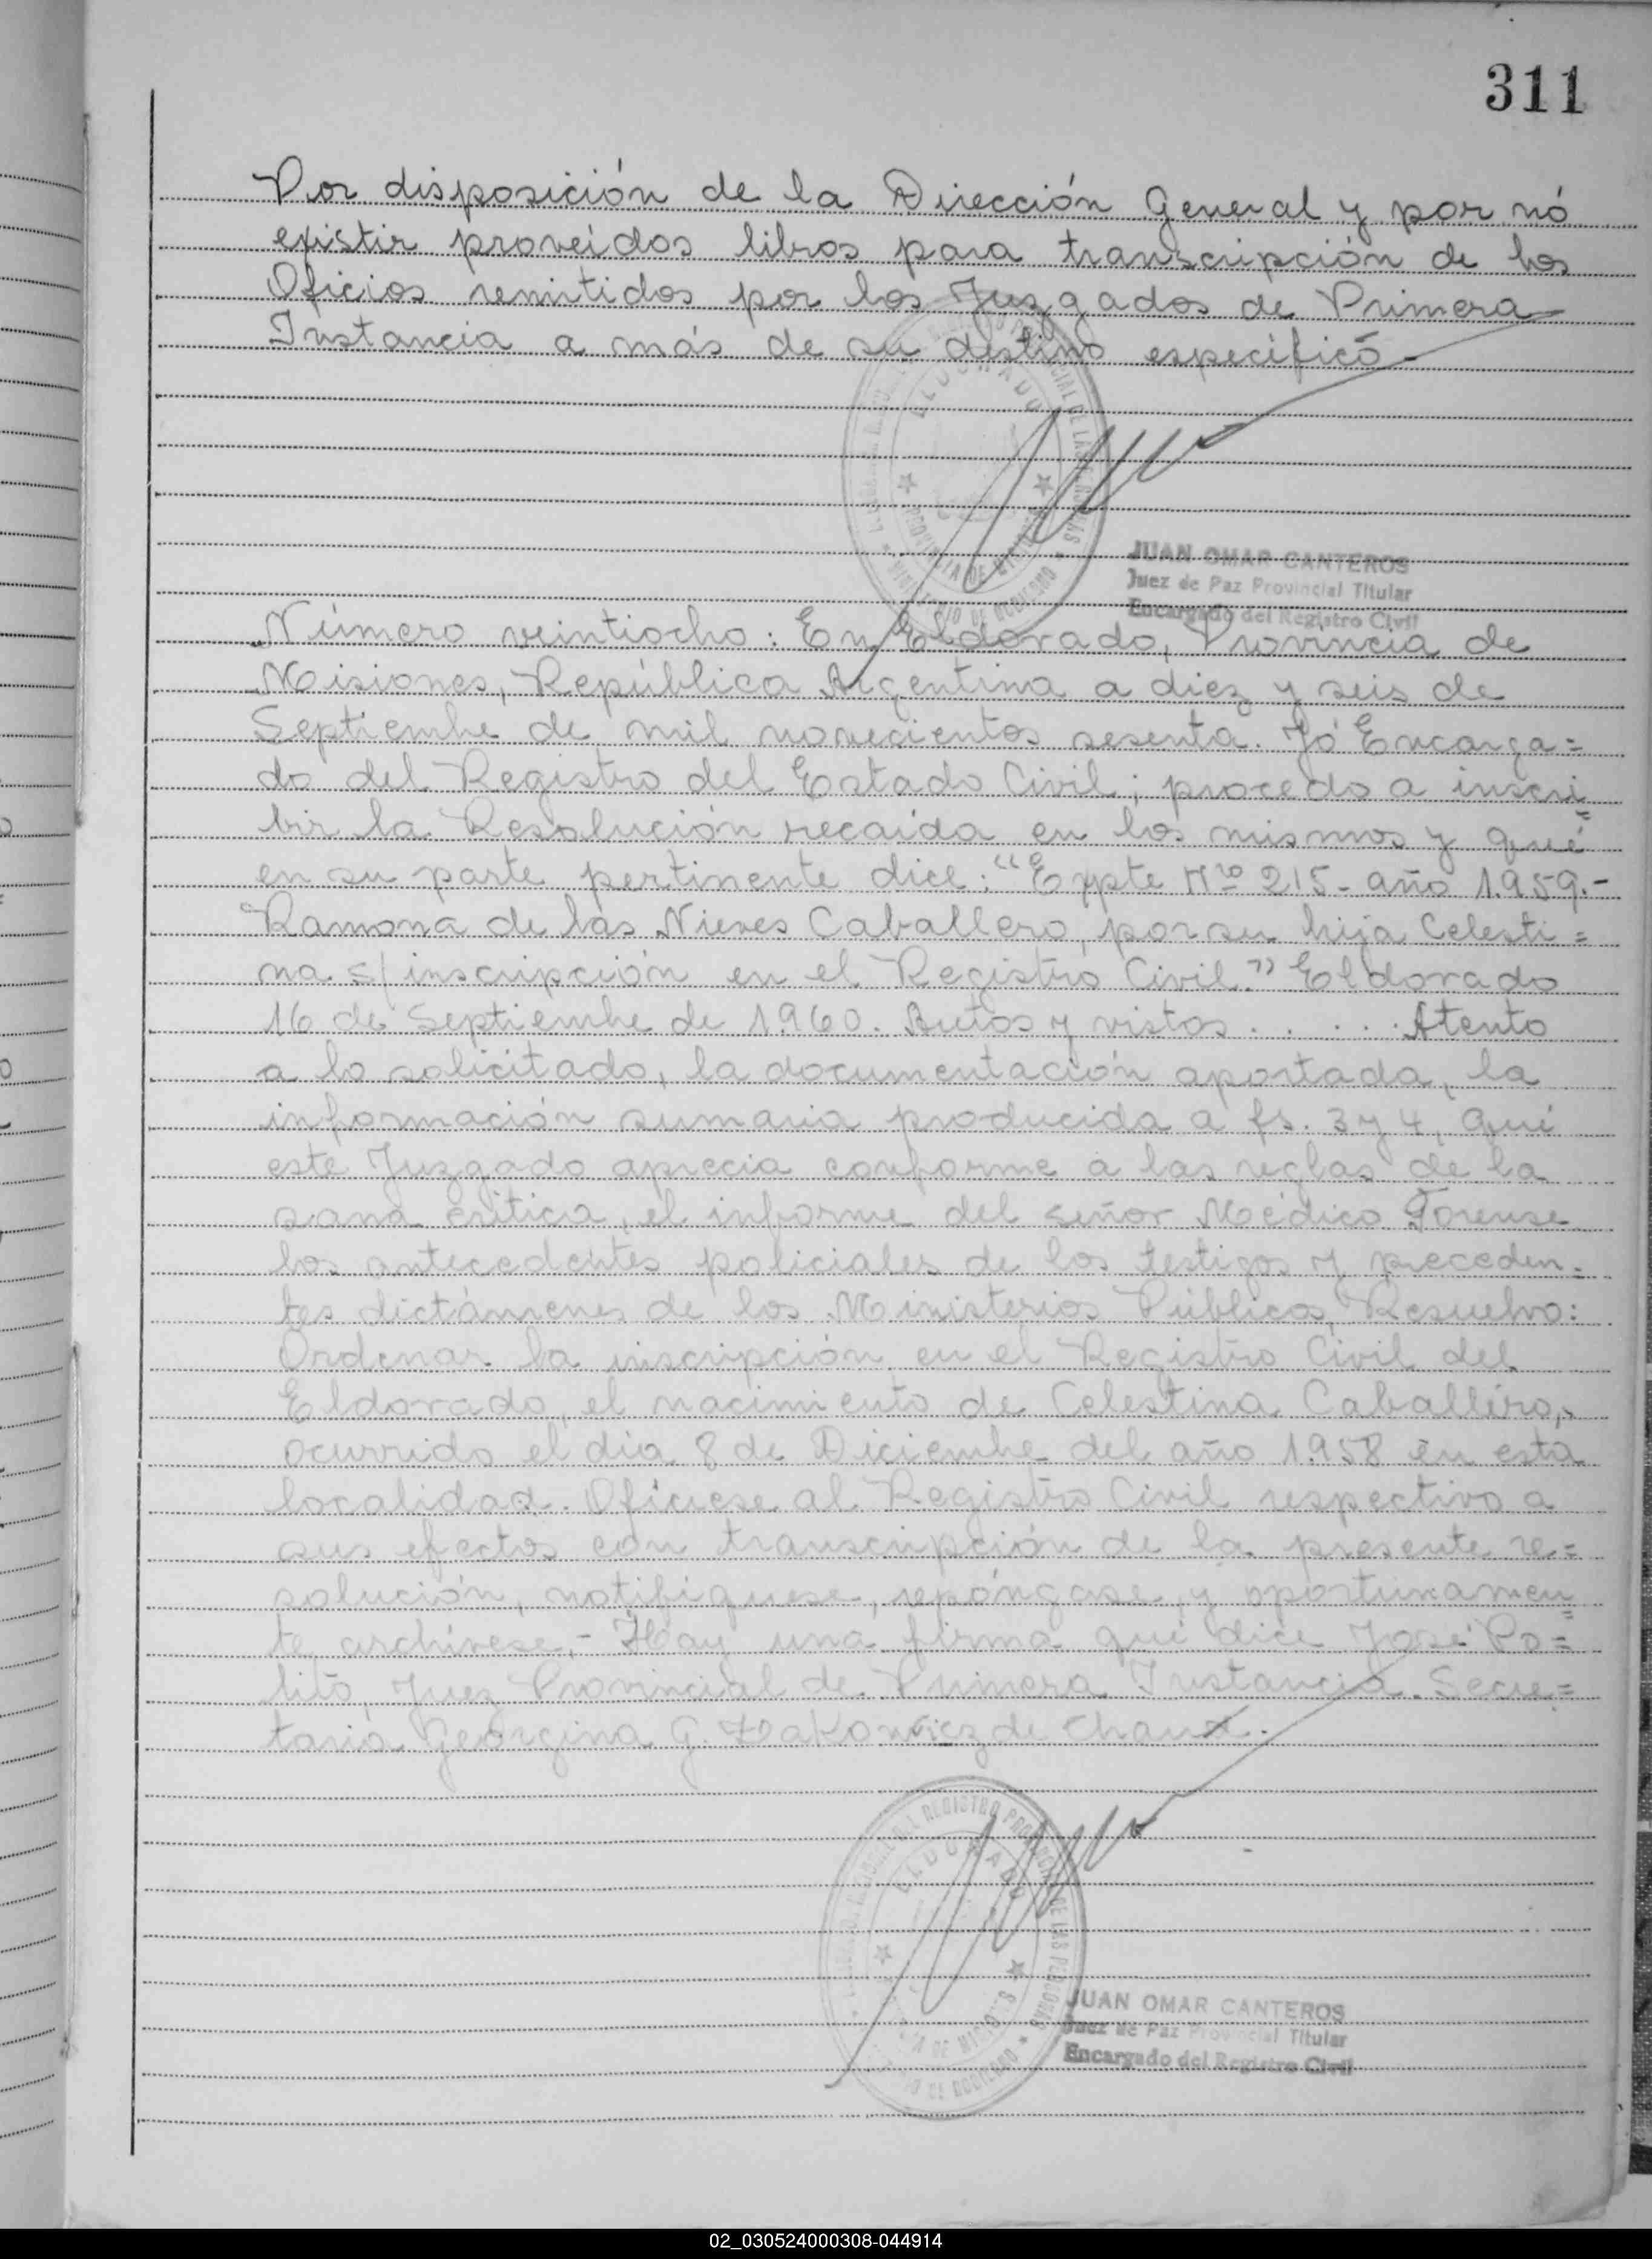 311
Por disposición de la Dirección General y por nó
existir proveídos libros para transcripción de los
Oficios remitidos por los Juzgados de Primera
Instancia a más de su destino especificó
ELDORADO
JUAN OMAR CANTEROS
Juez de Paz Provincial Titular
Encargado del Registro Civil
Número veintiocho: En Eldorado, Provincia de
Misiones, República Argentina a diez y seis de
Septiembre de mil novecientos sesenta. Yó Encarga=
do del Registro del Estado Civil; procedo a inscri=
bir la Resolución recaída en los mismos y qué
en su parte pertinente dice: "Expte Nro 215- año 1.959.-
Ramona de las Nieves Caballero, por su hija Celesti=
na s/inscripción en el Registro Civil." Eldorado
16 de Septiembre de 1.960. Autos y vistos . . . . . Atento
a lo solicitado, la documentación aportada, la
información sumaria producida a fs. 3 y 4, qui
este Juzgado aprecia conforme a las reglas de la
sana crítica, el informe del señor Médico Forense
los antecedentes policiales de los testigos y preceden=
tes dictámenes de los Ministerios Públicos, Resuelvo:
Ordenar la inscripción en el Registro Civil del
Eldorado, el nacimiento de Celestina Caballero,
ocurrido el día 8 de Diciembre del año 1.958 en esta
localidad. Ofíciese al Registro Civil respectivo a
sus efectos con transcripción de la presente re=
solución, notifíquese, repóngase, y oportunamen=
te archívese,- Hay una firma qui dice José Po=
lito, Juez Provincial de Primera Instancia. Secre=
taria Georgina G. de
ELDORADO
JUAN OMAR CANTEROS
Juez de Paz Provincial Titular
Encargado del Registro Civil
02_030524000308-044914